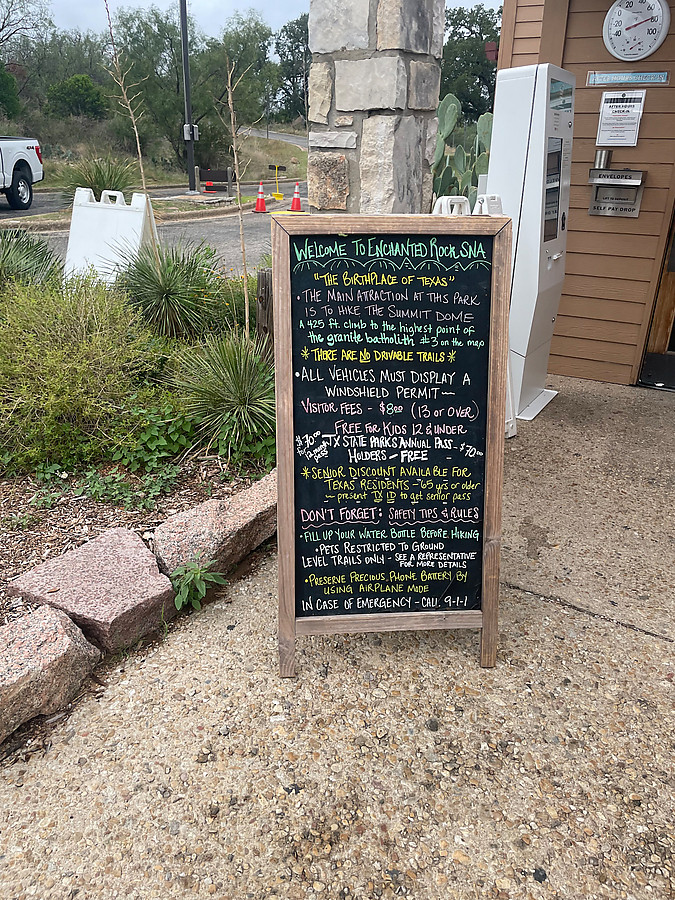 Welcome To Enchanted Rock SNA
"The Birthplace of Texas"
• The Main Attraction at this Park
is to Hike the Summit Dome
A 425 ft. climb to the highest point of
the granite batholith #3 on the map
* There are No Drivable Trails *
• All Vehicles Must Display a
Windshield Permit
Visitor Fees - $8.00 (13 or over)
Free for Kids 12 & Under
$70.00 for 12 month pass
TX State Parks Annual Pass - $70.00
Holders - Free
* Senior Discount Available For
Texas Residents - 65 yrs or older
- present TX ID to get senior pass
Don't Forget: Safety Tips & Rules
• Fill up Your Water Bottle Before Hiking
• Pets Restricted to Ground
Level Trails Only - See a Representative
for more details
• Preserve Precious Phone Battery by
using airplane mode
In Case of Emergency - Call 9-1-1
AFTER HOURS
CHECK-IN
ENVELOPES
SELF PAY
DROP